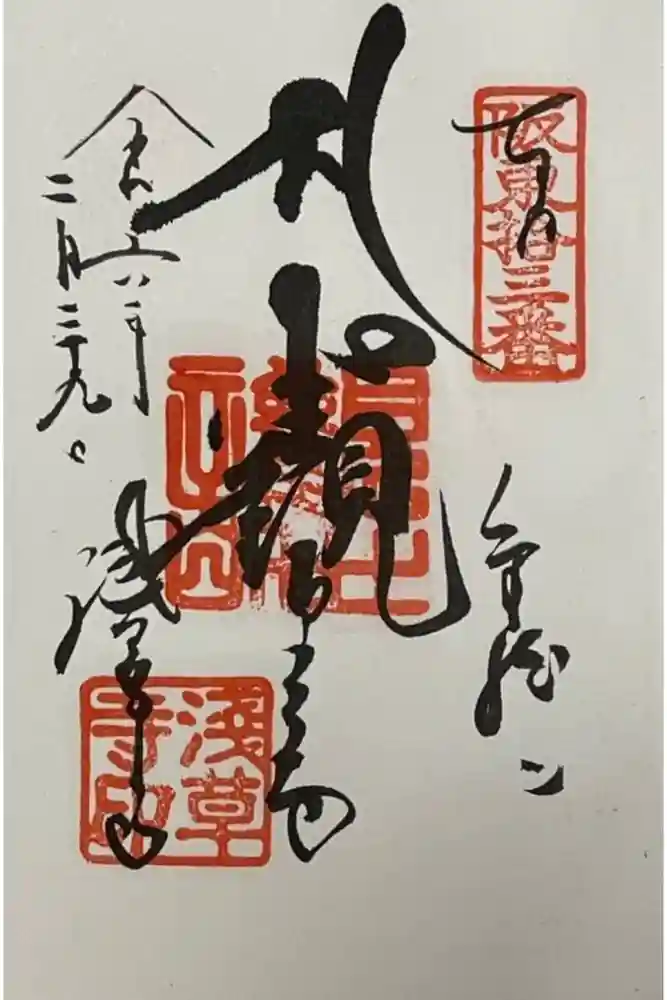 阪東拾三番
金龍山
聖観世音
浅草寺
浅草
寺印
令和六年
二月二十九日